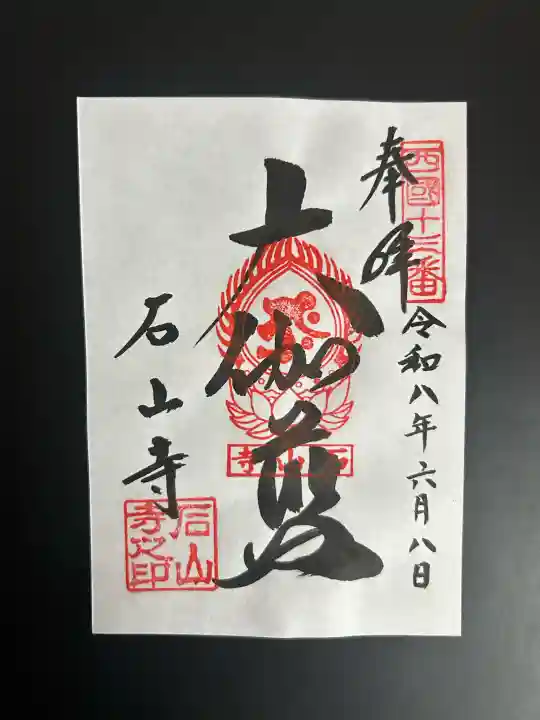 西國十三番
奉拝
令和八年六月八日
大伽藍
石山寺
石山寺
石山寺之印